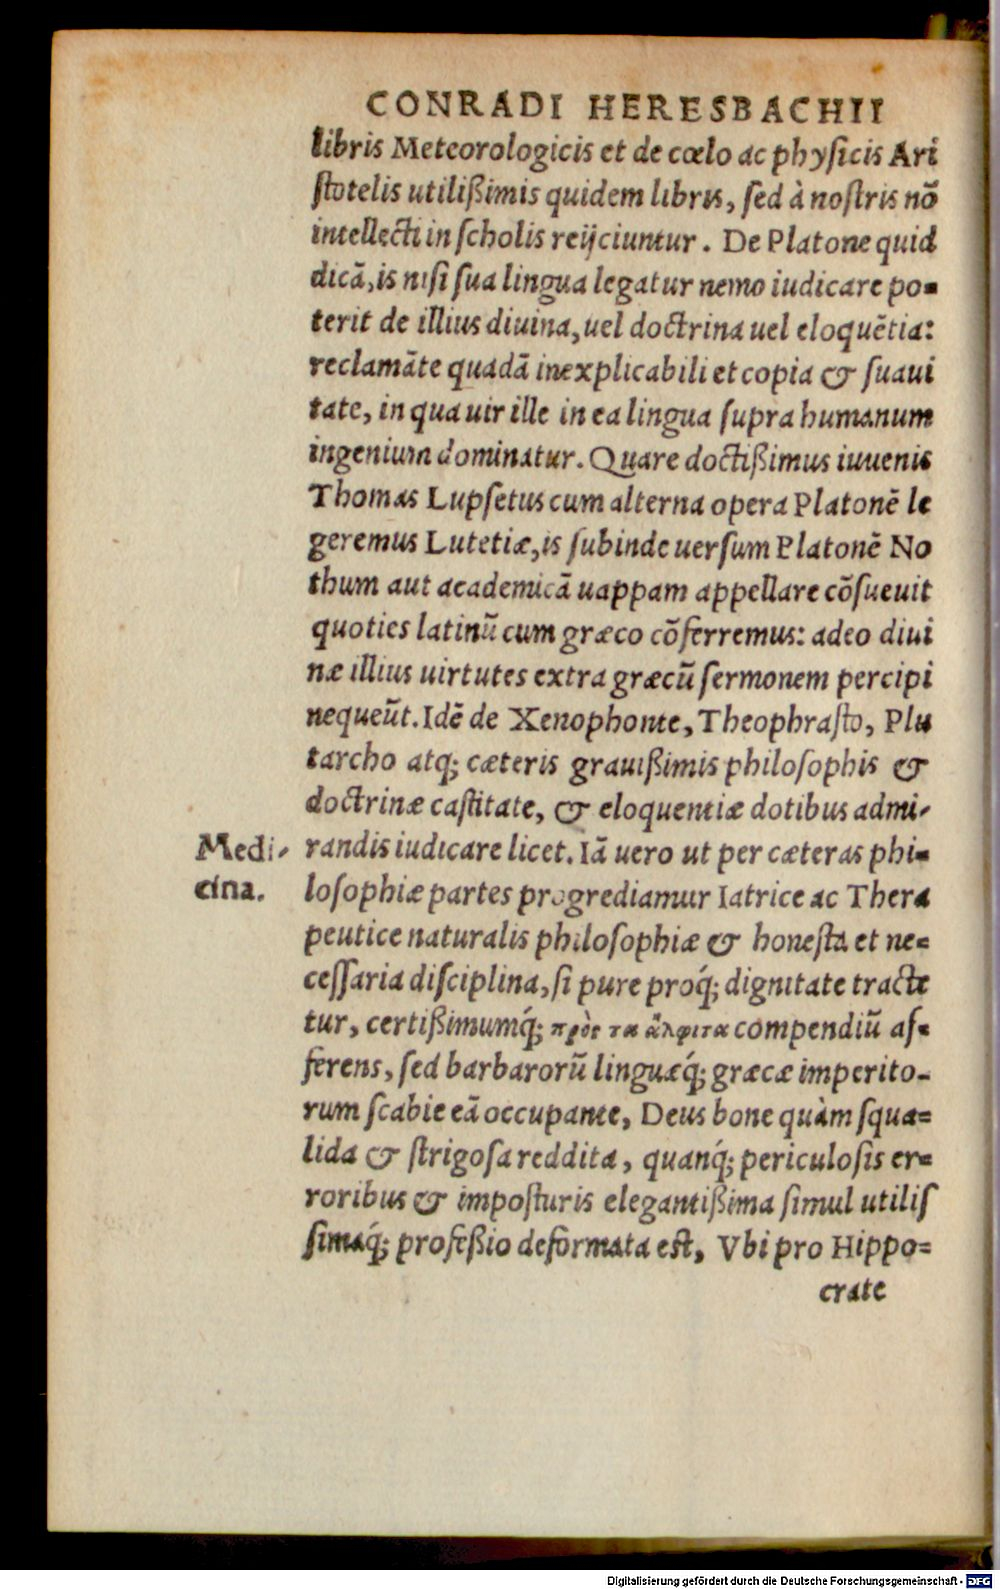 CONRADI HERESBACHII
libris Meteorologicis et de cœlo ac physicis Ari
stotelis utilißimis quidem libris, sed à nostris nō
intellecti in scholis reijciuntur. De Platone quid
dicā, is nisi sua lingua legatur nemo iudicare po=
terit de illius diuina, uel doctrina uel eloquētia:
reclamāte quadā inexplicabili et copia & suaui
tate, in qua uir ille in ea lingua supra humanum
ingenium dominatur. Quare doctißimus iuuenis
Thomas Lupsetus cum alterna opera Platonē le
geremus Lutetiæ, is subinde uersum Platonē No
thum aut academicā uappam appellare cōsueuit
quoties latinū cum græco cōferremus: adeo diui
næ illius uirtutes extra græcū sermonem percipi
nequeūt. Idē de Xenophonte, Theophrasto, Plu
tarcho atq; cæteris grauißimis philosophis &
doctrinæ castitate, & eloquentiæ dotibus admi-
Medi-
cina.
randis iudicare licet. Iā uero ut per cæteras phi=
losophiæ partes progrediamur Iatrice ac Thera
peutice naturalis philosophiæ & honesta et ne=
cessaria disciplina, si pure proq́; dignitate tracte
tur, certißimumq́; πρὸς τα ἄλφιτα compendiū af=
ferens, sed barbarorū linguæq́; græcæ imperito-
rum scabie eā occupante, Deus bone quàm squa=
lida & strigosa reddita, quanq́; periculosis er=
roribus & imposturis elegantißima simul utilis
simaq́; profeßio deformata est, Vbi pro Hippo=
crate
Digitalisierung gefördert durch die Deutsche Forschungsgemeinschaft - DFG